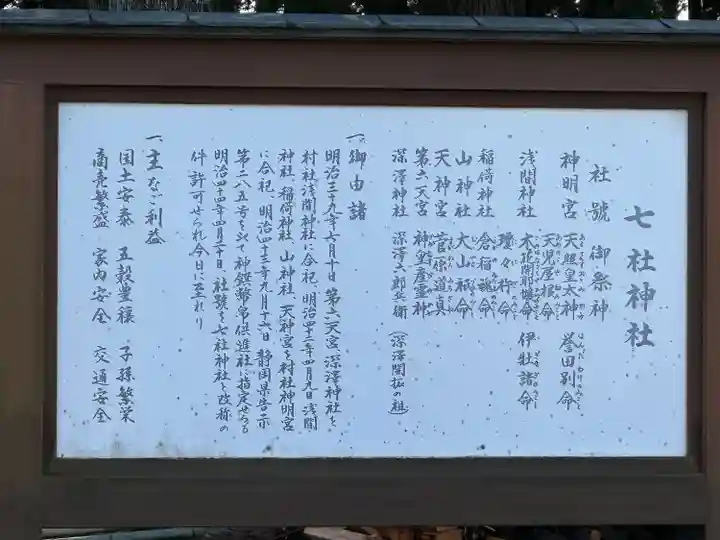 七社神社
社號 御祭神
神明宮 天照皇大神 誉田別命
天児屋根命
浅間神社 木花開耶姫命 伊弉諸命
瓊々杵命
稲荷神社 倉稲魂命
山神社 大山祇命
天神宮 菅原道真
第六天宮 神皇産霊神
深澤神社 深澤六郎兵衛 (深澤開拓の祖)
一、御由諸
明治三十九年六月十日 第六天宮 深澤神社を
村社浅間神社に合祀、明治四十二年四月九日浅間
神社 稲荷神社 山神社 天神宮を村社神明宮
に合祀 明治四十三年九月十六日 静岡県告示
第二八五号を以て神饌幣帛供進社に指定せらる
明治四十四年四月二十日 社號を七社神社と改称の
件許可せられ今日に至れり
一、主なご利益
国土安泰 五穀豊穣 子孫繁栄
商売繁盛 家内安全 交通安全